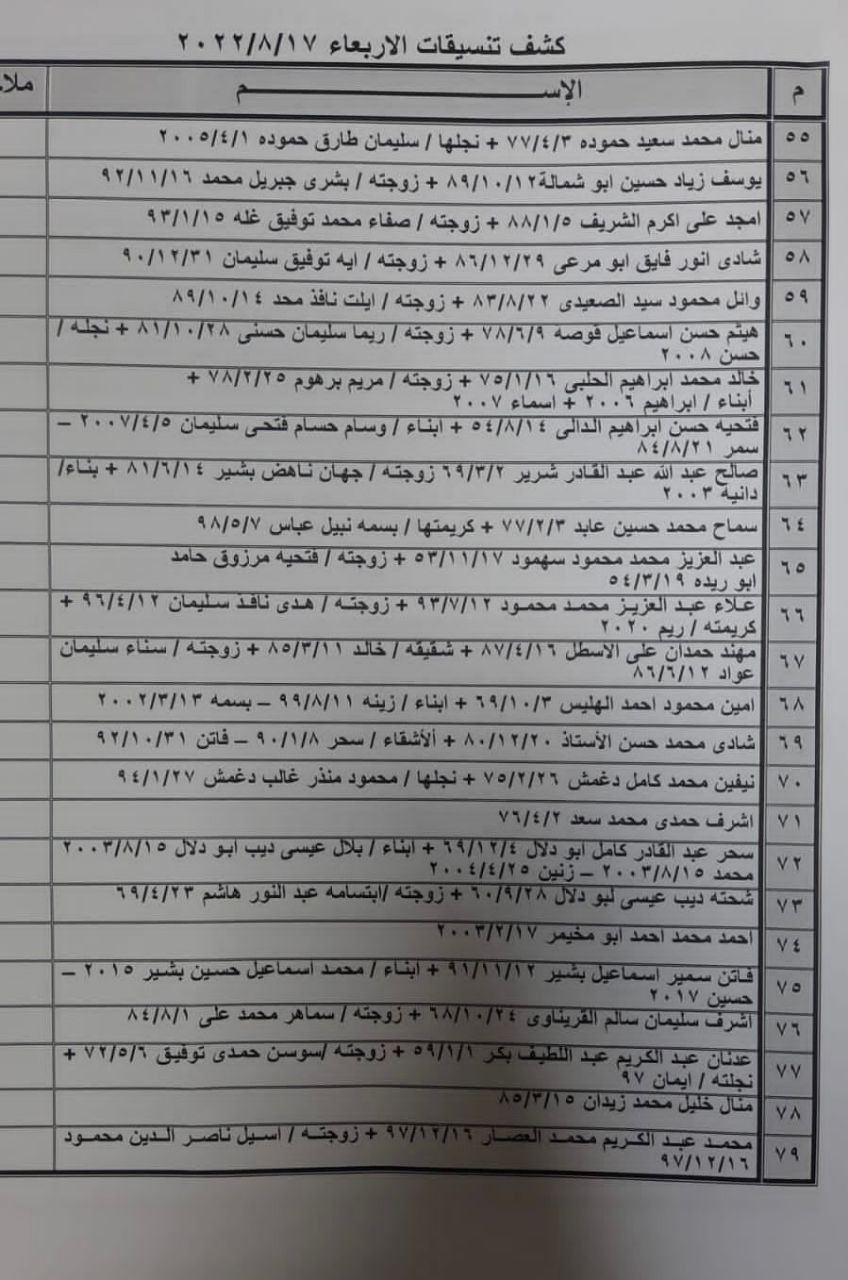 كشف تنسيقات الاربعاء ٢٠٢٢/٨/١٧
م الإســـــــم
٥٥ منال محمد سعيد حموده ٧٧/٤/٣ + نجلها / سليمان طارق حموده ٢٠٠٥/٤/١
٥٦ يوسف زياد حسين ابو شمالة ٨٩/١٠/١٢ + زوجته / بشرى جبريل محمد ٩٢/١١/١٦
٥٧ امجد على اكرم الشريف ٨٨/١/٥ + زوجته / صفاء محمد توفيق غله ٩٣/١/١٥
٥٨ شادى انور فايق ابو مرعى ٨٦/١٢/٢٩ + زوجته / ايه توفيق سليمان ٩٠/١٢/٣١
٥٩ وائل محمود سيد الصعيدى ٨٣/٨/٢٢ + زوجته / ايلت نافذ محد ٨٩/١٠/١٤
٦٠ هيثم حسن اسماعيل قوصه ٧٨/٦/٩ + زوجته / ريما سليمان حسنى ٨١/١٠/٢٨ + نجله /
حسن ٢٠٠٨
٦١ خالد محمد ابراهيم الحلبى ٧٥/١/١٦ + زوجته / مريم برهوم ٧٨/٢/٢٥ +
أبناء / ابراهيم ٢٠٠٦ + اسماء ٢٠٠٧
٦٢ فتحيه حسن ابراهيم الدالى ٥٤/٨/١٤ + ابناء / وسام حسام فتحى سليمان ٢٠٠٧/٤/٥ –
سمر ٨٤/٨/٢١
٦٣ صالح عبد الله عبد القادر شرير ٦٩/٣/٢ زوجته / جهان ناهض بشير ٨١/٦/١٤ + بناء/
دانيه ٢٠٠٣
٦٤ سماح محمد حسين عابد ٧٧/٢/٣ + كريمتها / بسمه نبيل عباس ٩٨/٥/٧
٦٥ عبد العزيز محمد محمود سهمود ٥٣/١١/١٧ + زوجته / فتحيه مرزوق حامد
ابو ريده ٥٤/٣/١٩
٦٦ علاء عبد العزيز محمد محمود ٩٣/٧/١٢ + زوجته / هدى نافذ سليمان ٩٦/٤/١٢ +
كريمته / ريم ٢٠٢٠
٦٧ مهند حمدان على الاسطل ٨٧/٤/١٦ + شقيقه / خالد ٨٥/٣/١١ + زوجته / سناء سليمان
عواد ٨٦/٦/١٢
٦٨ امين محمود احمد الهليس ٦٩/١٠/٣ + ابناء / زينه ٩٩/٨/١١ – بسمه ٢٠٠٢/٣/١٣
٦٩ شادى محمد حسن الأستاذ ٨٠/١٢/٢٠ + ألأشقاء / سحر ٩٠/١/٨ – فاتن ٩٢/١٠/٣١
٧٠ نيفين محمد كامل دغمش ٧٥/٢/٢٦ + نجلها / محمود منذر غالب دغمش ٩٤/١/٢٧
٧١ اشرف حمدى محمد سعد ٧٦/٤/٢
٧٢ سحر عبد القادر كامل ابو دلال ٦٩/١٢/٤ + ابناء / بلال عيسى ديب ابو دلال ٢٠٠٣/٨/١٥
محمد ٢٠٠٣/٨/١٥ – زنين ٢٠٠٤/٤/٢٥
٧٣ شحته ديب عيسى لبو دلال ٦٠/٩/٢٨ + زوجته /ابتسامه عبد النور هاشم ٦٩/٤/٢٣
٧٤ احمد محمد احمد ابو مخيمر ٢٠٠٣/٢/١٧
٧٥ فاتن سمير اسماعيل بشير ٩١/١١/١٢ + ابناء / محمد اسماعيل حسين بشير ٢٠١٥ –
حسين ٢٠١٧
٧٦ اشرف سليمان سالم القريناوى ٦٨/١٠/٢٤ + زوجته / سماهر محمد على ٨٤/٨/١
٧٧ عدنان عبد الكريم عبد اللطيف بكر ٥٩/١/١ + زوجته /سوسن حمدى توفيق ٧٢/٥/٦ +
نجلته / ايمان ٩٧
٧٨ منال خليل محمد زيدان ٨٥/٣/١٥
٧٩ محمد عبد الكريم محمد العصار ٩٧/١٢/١٦ + زوجته / اسيل ناصر الدين محمود
٩٧/١٢/١٦